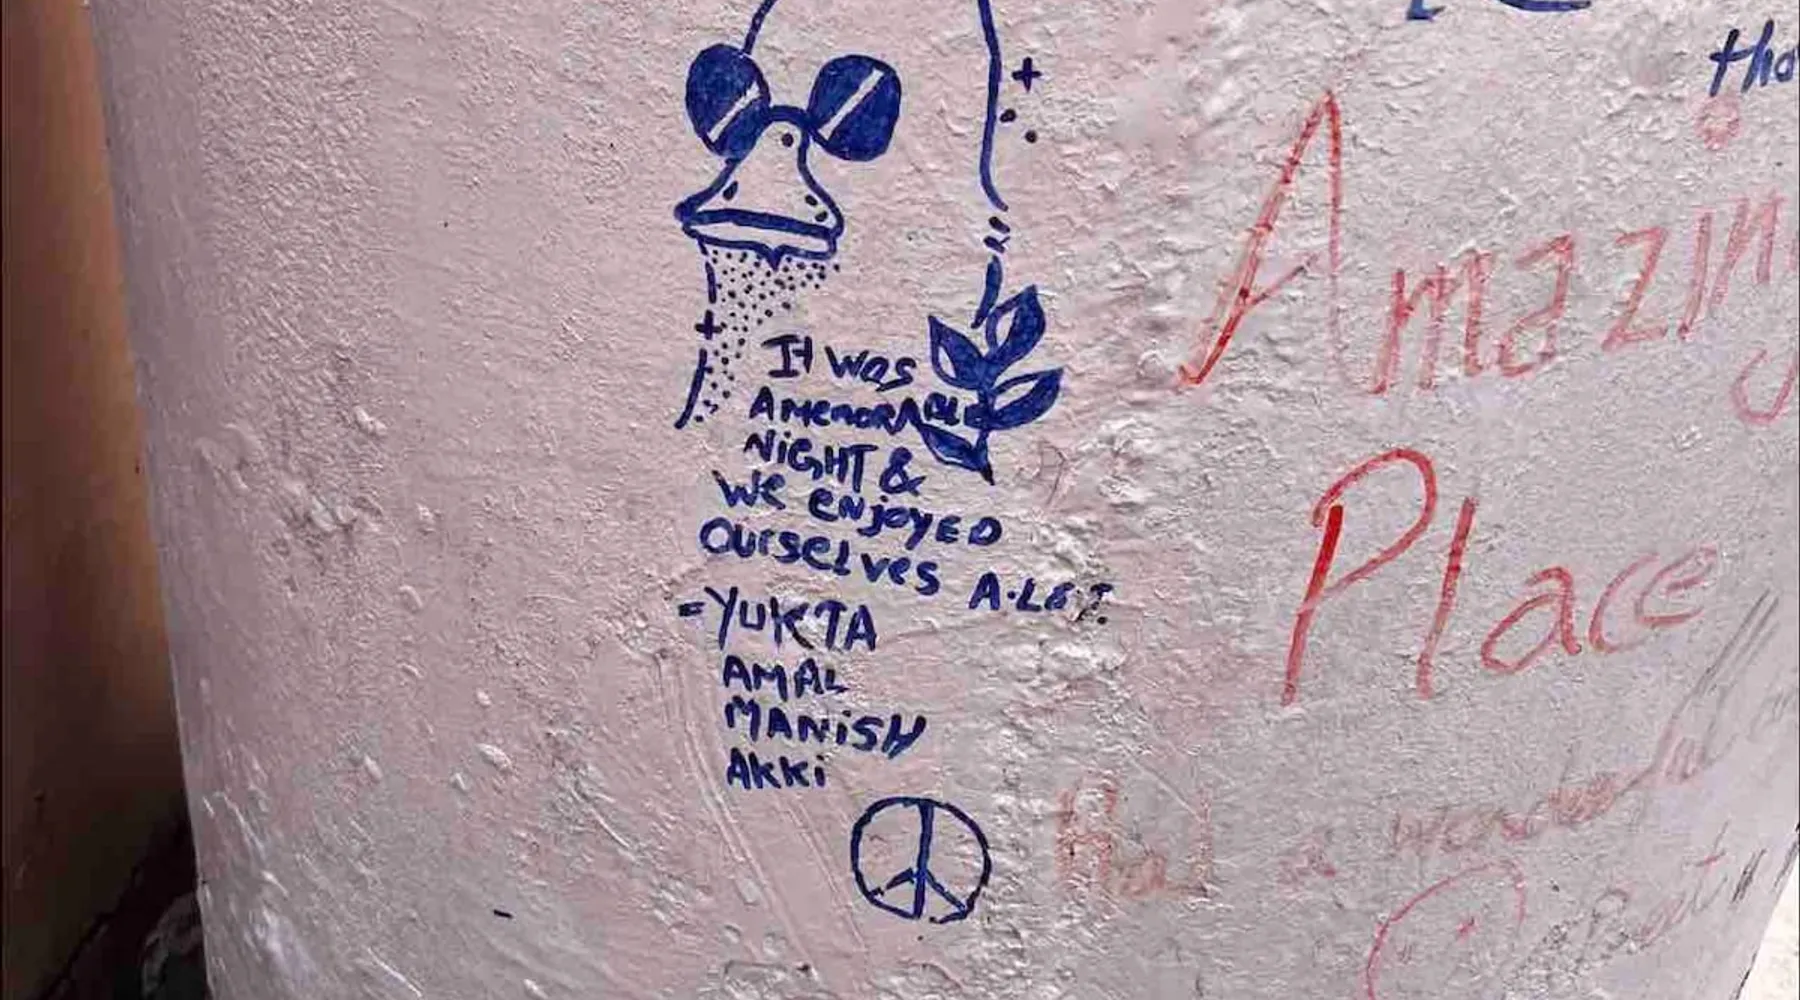 It was
A MEMORABLE
NiGHT &
We eNjoyED
Ourselves
=YUKTA
AMAL
MANiSH
AKKi
tha
Amazing
Place
Had a wonderful